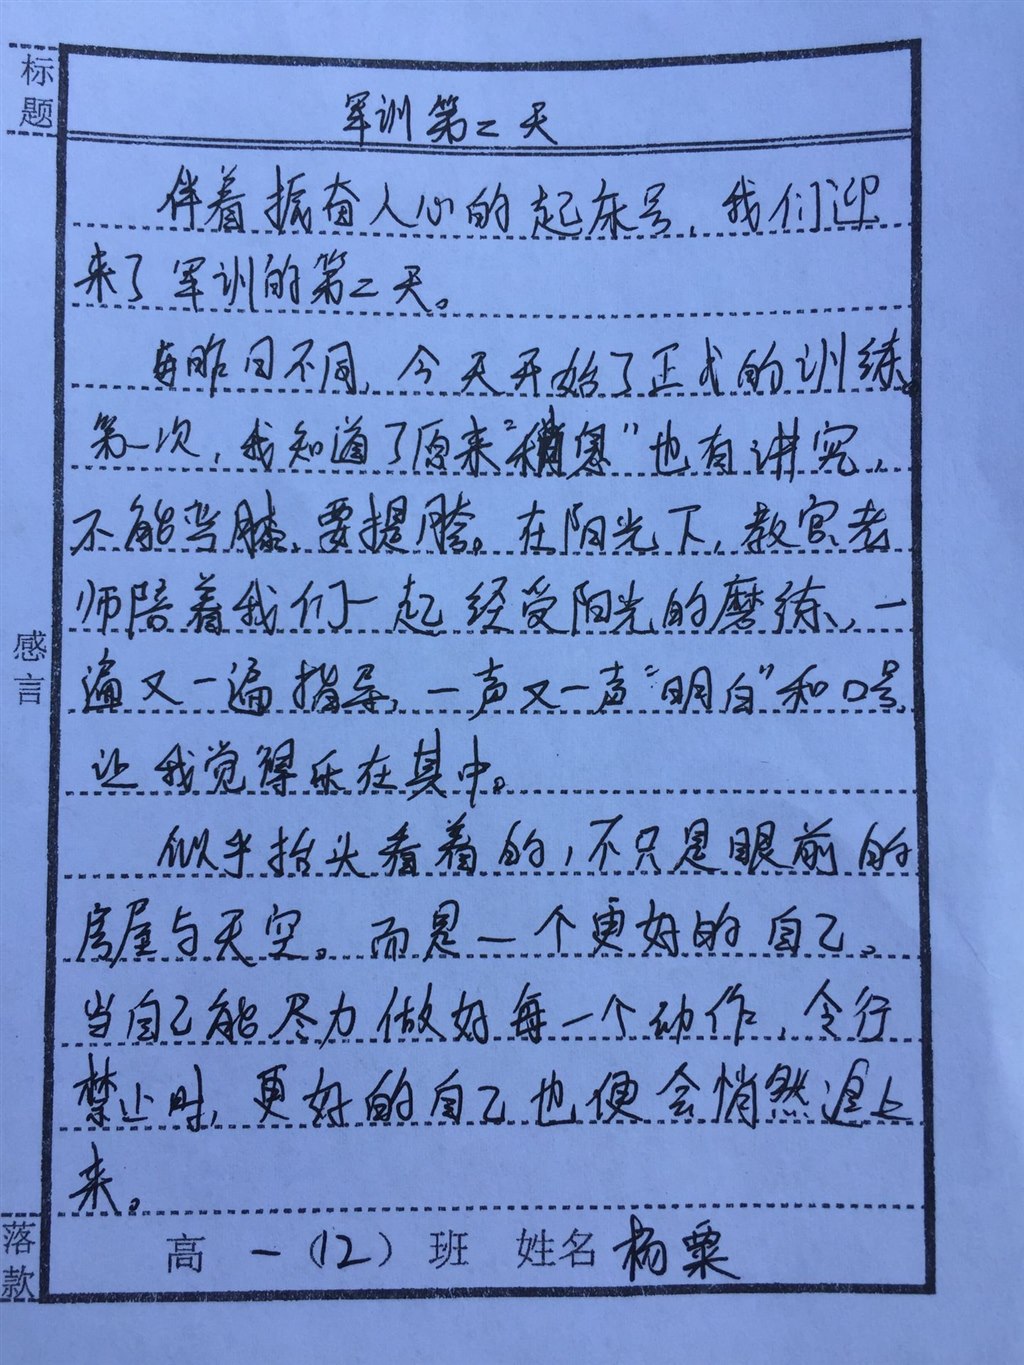 标题
军训第二天
伴着振奋人心的起床号，我们迎
来了军训的第二天。
与昨日不同，今天开始了正式的训练。
第一次，我知道了原来“稍息”也有讲究，
不能弯膝，要提胯。在阳光下，教官老
师陪着我们一起经受阳光的磨练，一
遍又一遍指导，一声又一声“明白”和口号，
让我觉得乐在其中。
感言
似乎抬头看着的，不只是眼前的
房屋与天空。而是一个更好的自己。
当自己能尽力做好每一个动作，令行
禁止时，更好的自己也便会悄然追上
来。
落款
高一（12）班 姓名 杨粟